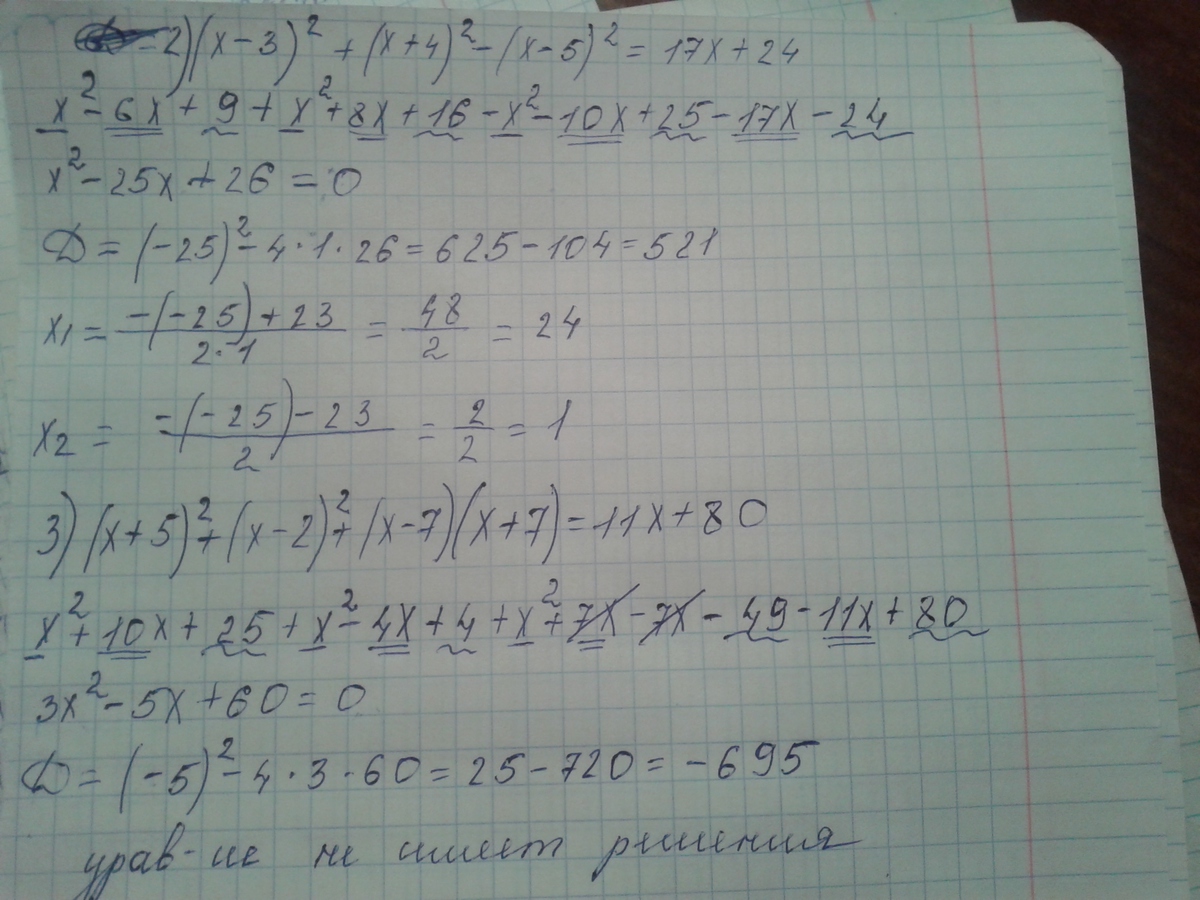 2) (x-3)² + (x+4)² - (x-5)² = 17x + 24
x² - 6x + 9 + x² + 8x + 16 - x² - 10x + 25 - 17x - 24
x² - 25x + 26 = 0
D = (-25)² - 4·1·26 = 625 - 104 = 521
x1 = (-(-25) + 23)/(2·1) = 48/2 = 24
x2 = (-(-25) - 23)/2 = 2/2 = 1
3) (x+5)² + (x-2)² + (x-7)(x+7) = 11x + 80
x² + 10x + 25 + x² - 4x + 4 + x² + 7x - 7x - 49 - 11x + 80
3x² - 5x + 60 = 0
D = (-5)² - 4·3·60 = 25 - 720 = -695
урав-ие не имеет решения